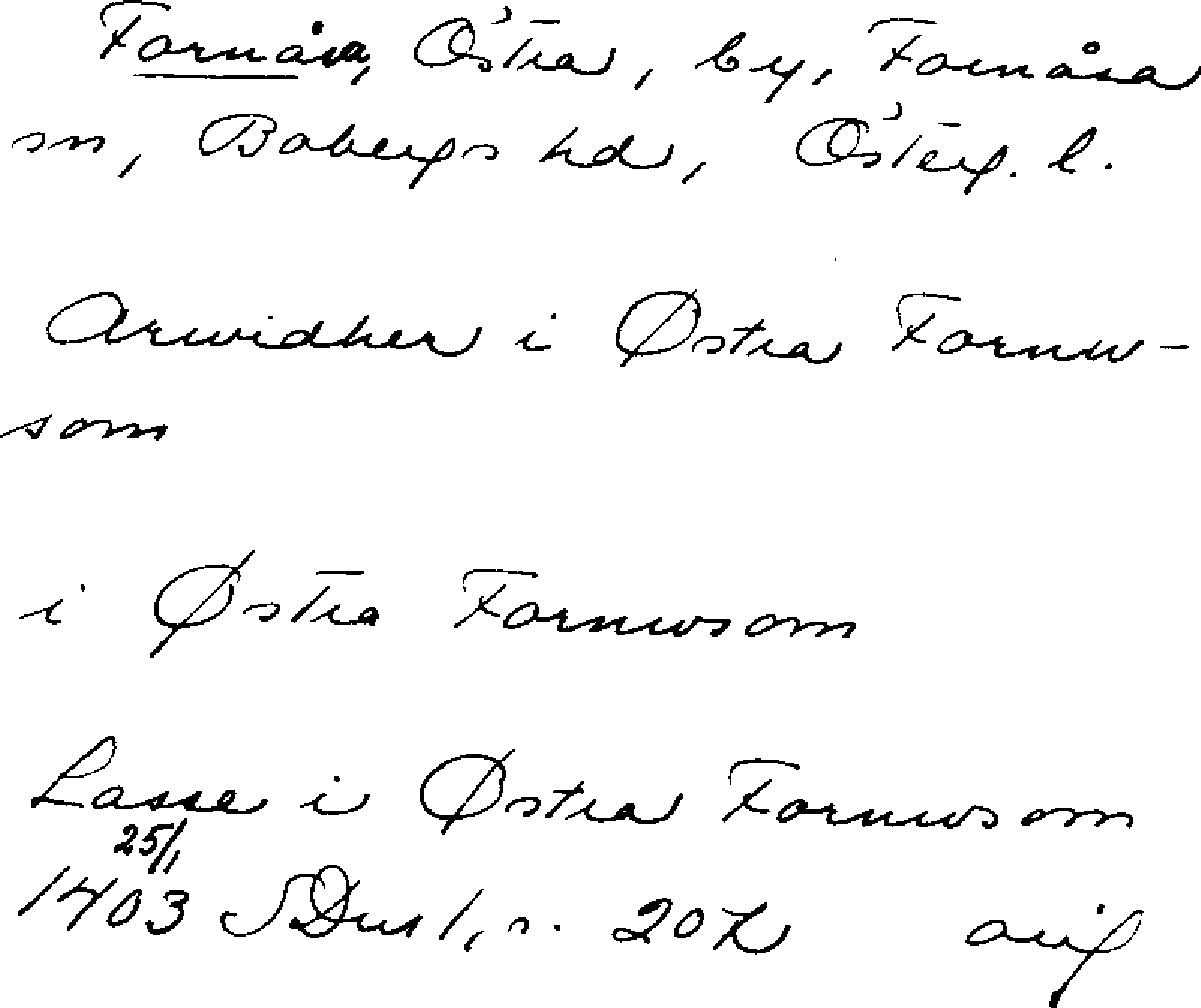 Fornåsa, Östra, by, Fornåsa
sn, Bobergs hd, Österg. l.
Arwidher i Østra Fornw-
som
i Østra Fornwsom
Lasse i Østra Fornwsom
25/1
1403 SDns 1, s. 202 orig